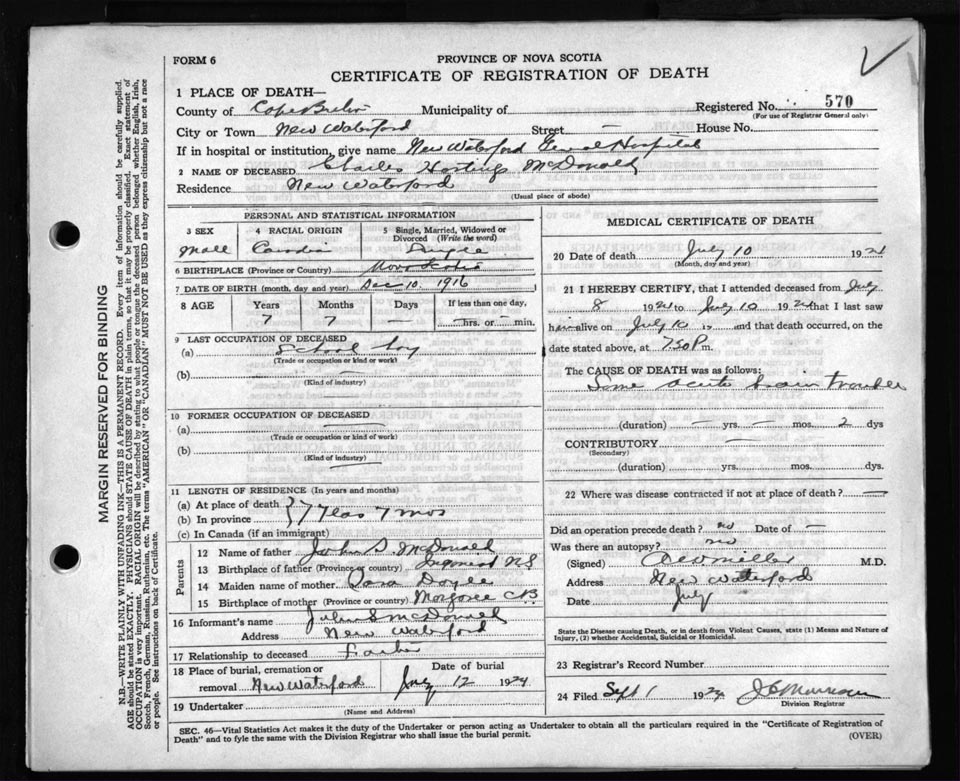 FORM 6
PROVINCE OF NOVA SCOTIA
CERTIFICATE OF REGISTRATION OF DEATH
1 PLACE OF DEATH—
County of Cape Breton Municipality of
Registered No. 570
(For use of Registrar General only)
City or Town New Waterford Street — House No.
If in hospital or institution, give name New Waterford General Hospital
2 NAME OF DECEASED Charles McDonald
Residence New Waterford
(Usual place of abode)
PERSONAL AND STATISTICAL INFORMATION
3 SEX 4 RACIAL ORIGIN 5 Single, Married, Widowed or Divorced (Write the word)
Male Single
6 BIRTHPLACE (Province or Country) Nova Scotia
7 DATE OF BIRTH (month, day and year) Dec 10. 1916
8 AGE Years Months Days If less than one day,
7 7 — — hrs. or min.
9 LAST OCCUPATION OF DECEASED
(a) School boy
(Trade or occupation or kind or work)
(b) —
(Kind of industry)
10 FORMER OCCUPATION OF DECEASED
(a) —
(Trade or occupation or kind of work)
(b) —
(Kind of industry)
11 LENGTH OF RESIDENCE (In years and months)
(a) At place of death
(b) In province } 7 years 7 mos
(c) In Canada (if an immigrant)
Parents
12 Name of father John S. McDonald
13 Birthplace of father (Province or country) N.S
14 Maiden name of mother Doyle
15 Birthplace of mother (Province or country) Margaree CB
16 Informant's name John S McDonald
Address New Waterford
17 Relationship to deceased Father
18 Place of burial, cremation or removal New Waterford
Date of burial July 12 1924
19 Undertaker
(Name and Address)
MEDICAL CERTIFICATE OF DEATH
20 Date of death July 10 1924
(Month, day and year)
21 I HEREBY CERTIFY, that I attended deceased from July
8 1924 to July 10 1924 that I last saw
him alive on July 10 and that death occurred, on the
date stated above, at 7.50 P m.
The CAUSE OF DEATH was as follows:
Some acute brain trouble
(duration) — yrs. — mos. 2 dys
CONTRIBUTORY —
(Secondary)
(duration) yrs. mos. dys.
22 Where was disease contracted if not at place of death? —
Did an operation precede death? no Date of —
Was there an autopsy? no
(Signed) Miller M.D.
Address New Waterford
Date July
State the Disease causing Death, or in death from Violent Causes, state (1) Means and Nature of Injury, (2) whether Accidental, Suicidal or Homicidal.
23 Registrar's Record Number
24 Filed Sept 1 1924
Division Registrar
SEC. 46—Vital Statistics Act makes it the duty of the Undertaker or person acting as Undertaker to obtain all the particulars required in the "Certificate of Registration of
Death" and to fyle the same with the Division Registrar who shall issue the burial permit.
(OVER)
MARGIN RESERVED FOR BINDING
N.B.—WRITE PLAINLY WITH UNFADING INK—THIS IS A PERMANENT RECORD. Every item of information should be carefully supplied.
AGE should be stated EXACTLY. PHYSICIANS should STATE CAUSE OF DEATH in plain terms, so that it may be properly classified. Exact statement of
OCCUPATION is very important. RACIAL ORIGIN will be described by stating to what people or tongue the deceased person belonged whether English, Irish,
Scotch, French, German, Russian, Ruthenian, etc. The terms "AMERICAN" OR "CANADIAN" MUST NOT BE USED as they express citizenship but not a race
or people. See instructions on back of Certificate.